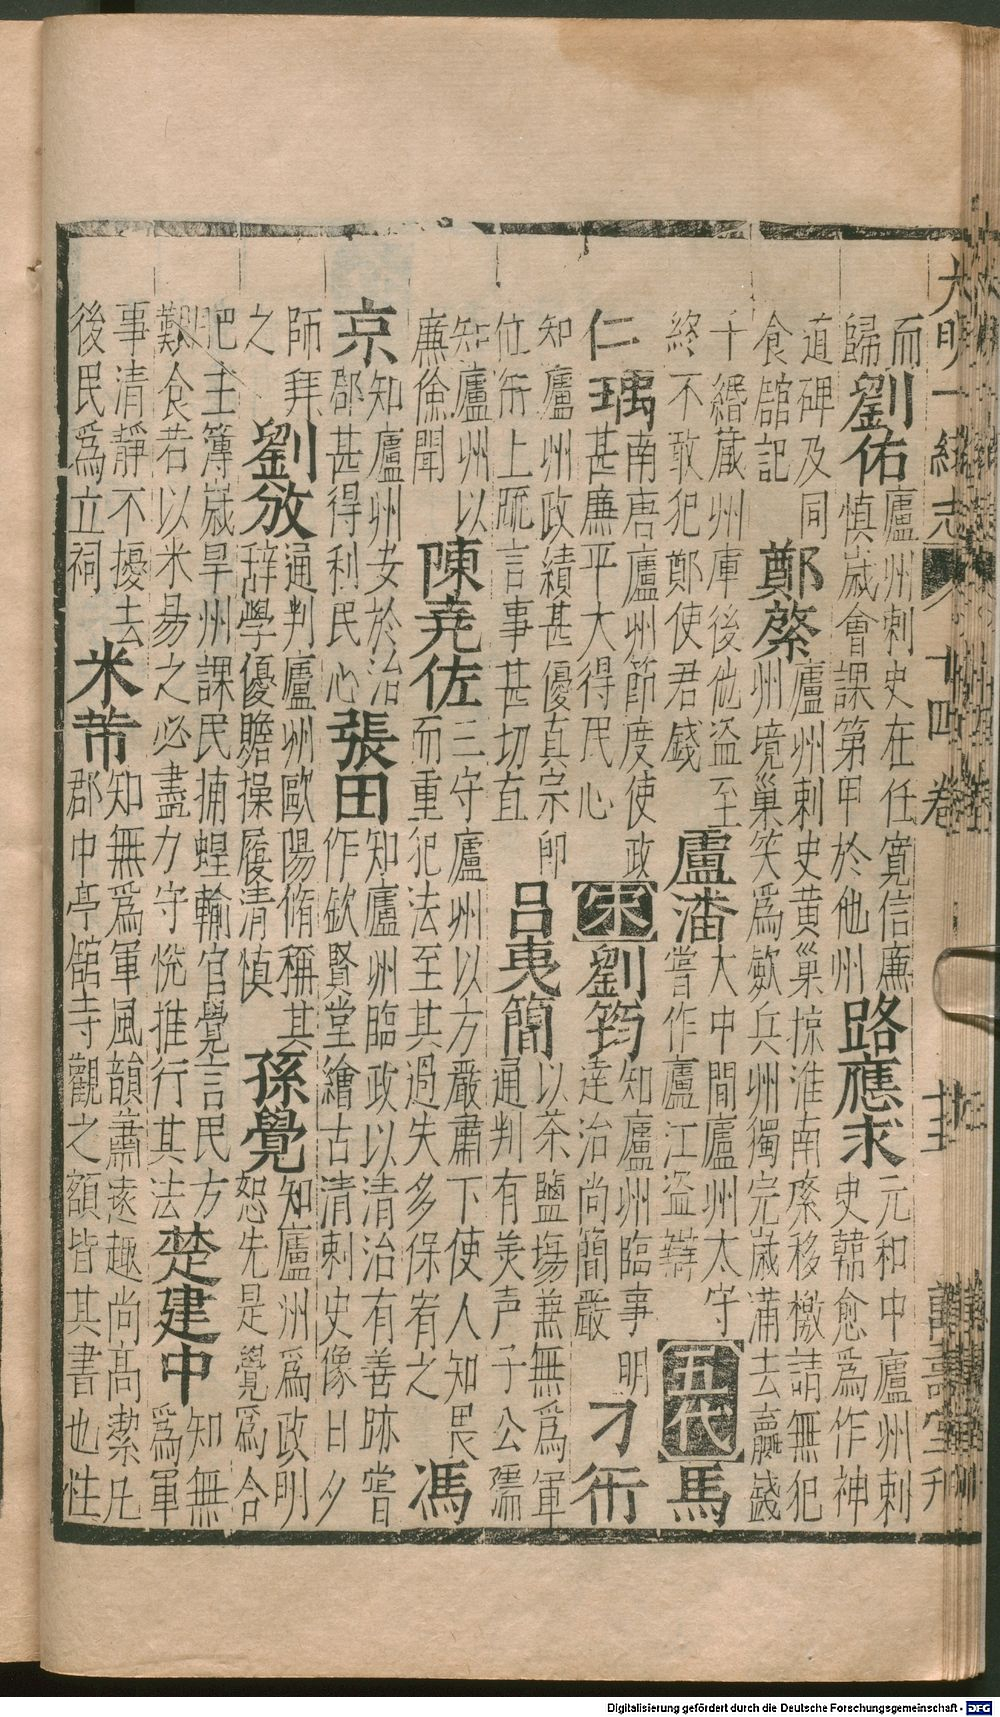 大明一統志 十四卷 萬壽堂刋
而歸劉佑廬州刺史在任寬信廉慎歲會課第甲於他州路應求元和中廬州刺史韓愈為作神
道碑及同食館記鄭綮廬州刺史黃巢掠淮南綮移檄請無犯州境巢笑為歛兵州獨完歲滿去贏錢
千緡藏州庫後他盜至終不敢犯鄭使君錢盧潘大中間廬州太守嘗作廬江盜辯五代馬
仁瑀南唐廬州節度使政甚廉平大得民心宋劉筠知廬州臨事明達治尚簡嚴刁衎
知廬州政績甚優真宗即位衎上䟽言事甚切直呂夷簡以茶鹽塲兼無為軍通判有美声子公孺
知廬州以廉儉聞陳堯佐三守廬州以方嚴肅下使人知畏而重犯法至其過失多保宥之馮
京知廬州安於治郡甚得利民心張田知廬州臨政以清治有善跡嘗作欽賢堂繪古清刺史像日夕
師拜之劉攽通判廬州歐陽脩稱其辭學優贍操履清慎孫覺知廬州為政明恕先是覺為合
肥主簿歲旱州課民捕蝗輸官覺言民方艱食若以米易之必盡力守悅推行其法楚建中知無為軍
事清靜不擾去後民為立祠米芾知無為軍風韻蕭遠趣尚高潔凡郡中亭館寺觀之額皆其書也性
Digitalisierung gefördert durch die Deutsche Forschungsgemeinschaft - DFG